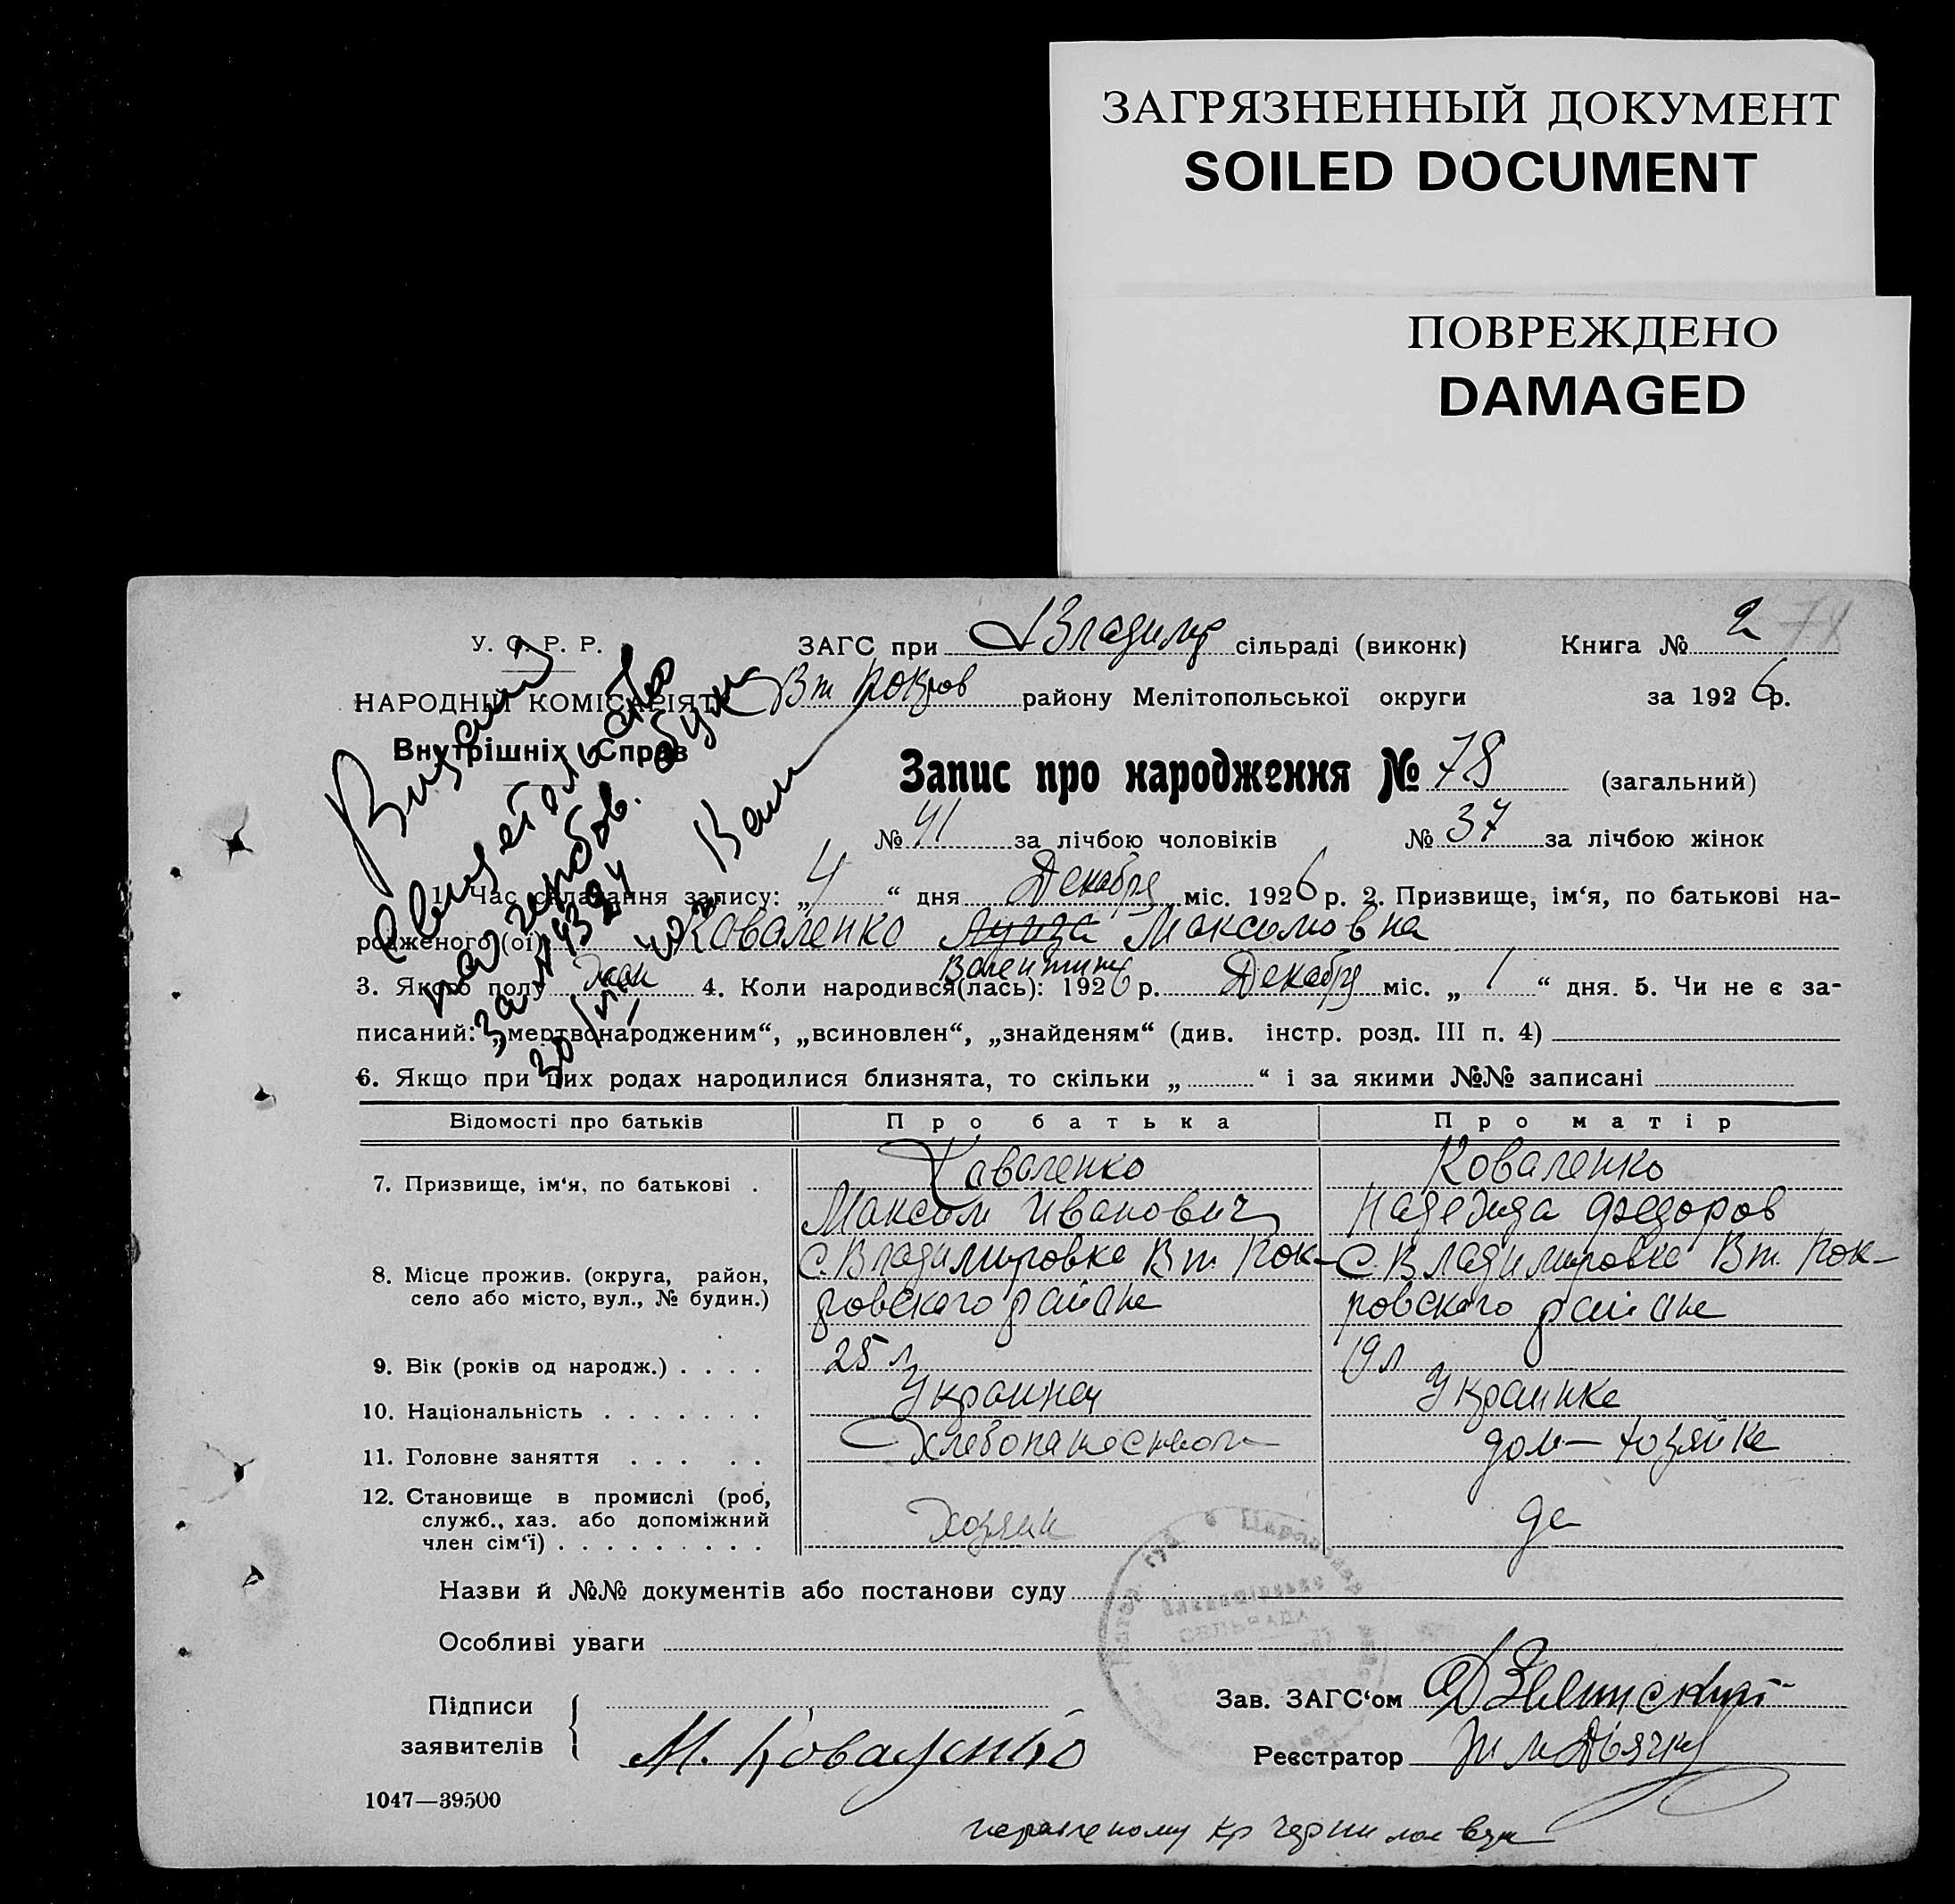 ЗАГРЯЗНЕННЫЙ ДОКУМЕНТ
SOILED DOCUMENT
ПОВРЕЖДЕНО
DAMAGED
У. С. Р. Р.
НАРОДНІЙ КОМІСАРІЯТ
Внутрішніх Справ
ЗАГС при Владимир сільраді (виконк) Книга № 2 78
Вт Покров району Мелітопольської округи за 1926 р.
Запис про народження № 78 (загальний)
№ 41 за лічбою чоловіків № 37 за лічбою жінок
1. Час складання запису: „4“ дня Декабря міс. 1926 р. 2. Призвище, ім'я, по батькові на-
родженого (ої) Коваленко Максимовна
Валентина
3. Якого полу жен 4. Коли народився(лась): 1926 р. Декабря міс. „1“ дня. 5. Чи не є за-
писаний: „мертвонародженим“, „всиновлен“, „знайденям“ (див. інстр. розд. III п. 4)
6. Якщо при цих родах народилися близнята, то скільки „ “ і за якими №№ записані
Відомості про батьків Про батька Про матір
7. Призвище, ім'я, по батькові . Коваленко Коваленко
Максим Иванович Надежда Федоров
8. Місце прожив. (округа, район, село або місто, вул., № будин.) с. Владимировка Вт. Пок- с. Владимировка Вт. Пок-
ровского района ровского района
9. Вік (років од народж.) . . . . 25 л 19 л
10. Національність . . . . . . . Украинец Украинка
11. Головне заняття . . . . . Хлебопашество дом-хозяйка
12. Становище в промислі (роб, служб., хаз. або допоміжний член сім'ї) . . . . . . . . . Хозяин
Назви й №№ документів або постанови суду
Особливі уваги
Підписи
заявителів
М. Коваленко
Зав. ЗАГС'ом
Реєстратор
1047—39500